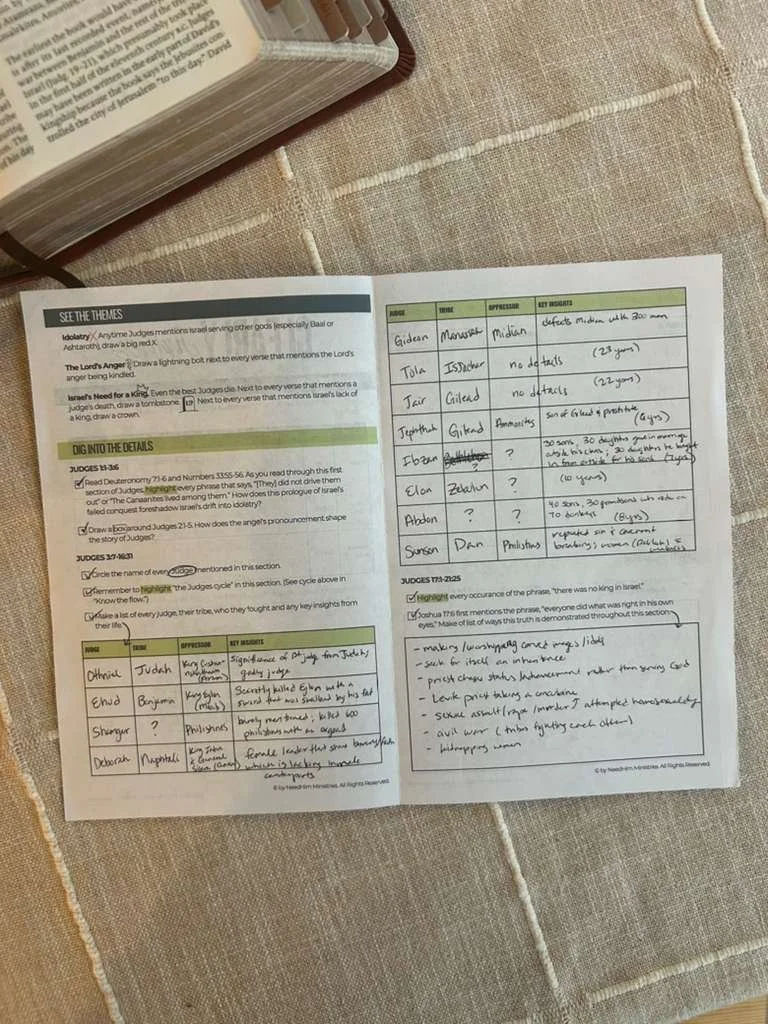 The earliest the book would have
is after its last recorded event, namely
war between Benjamin and the rest of the tribes
Israel (Judg. 19–21), which presumably took place
in the first half of the eleventh century B.C. Judges
may have been written in the early part of David's
kingship because the book says the Jebusites con-
trolled the city of Jerusalem "to this day." David
SEE THE THEMES
Idolatry X Anytime Judges mentions Israel serving other gods (especially Baal or
Ashtaroth), draw a big red X.
The Lord's Anger Draw a lightning bolt next to every verse that mentions the Lord's
anger being kindled.
Israel's Need for a King. Even the best Judges die. Next to every verse that mentions a
judge's death, draw a tombstone. RIP Next to every verse that mentions Israel's lack of
a king, draw a crown.
DIG INTO THE DETAILS
JUDGES 1:1-3:6
Read Deuteronomy 7:1-6 and Numbers 33:55-56. As you read through this first
section of Judges, highlight every phrase that says, "[They] did not drive them
out" or "The Canaanites lived among them." How does this prologue of Israel's
failed conquest foreshadow Israel's drift into idolatry?
Draw a box around Judges 2:1-5. How does the angel's pronouncement shape
the story of Judges?
JUDGES 3:7-16:31
Circle the name of every Judge mentioned in this section.
Remember to highlight "the Judges cycle" in this section. (See cycle above in
"Know the flow.")
Make a list of every judge, their tribe, who they fought and any key insights from
their life.
JUDGE TRIBE OPPRESSOR KEY INSIGHTS
Othniel Judah King significance of 1st judge from Judah;
godly judge
Ehud Benjamin King Eglon (Moab) Secretly killed Eglon with a
sword that was swallowed by his fat
Shamgar ? Philistines barely mentioned; killed 600
philistines with an oxgoad
Deborah Naphtali King Jabin & General female leader that
which is lacking in male
counterparts
© by NeedHim Ministries. All Rights Reserved.
JUDGE TRIBE OPPRESSOR KEY INSIGHTS
Gideon Manasseh Midian defeats Midian with 300 men
Tola Issachar no details (23 years)
Jair Gilead no details (22 years)
Jephthah Gilead Ammonites son of Gilead & prostitute (6 yrs)
Ibzan ? ? 30 sons, 30 daughters gave in marriage
outside his clans; 30 daughters he brought
in from outside for his sons (7 years)
Elon Zebulun ? (10 years)
Abdon ? ? 40 sons, 30 grandsons who rode on
70 donkeys (8 yrs)
Samson Dan Philistines repeated sin & covenant
breaking; women (Delilah) =
© by NeedHim Ministries. All Rights Reserved.
JUDGES 17:1-21:25
Highlight every occurance of the phrase, "there was no king in Israel."
Joshua 17:6 first mentions the phrase, "everyone did what was right in his own
eyes." Make of list of ways this truth is demonstrated throughout this section
- making/worshipping carved images/idols
- seek for itself an inheritance
- priest chose status/advancement rather than serving God
- Levite priest taking a concubine
- sexual assault/rape/murder/attempted homosexuality
- civil war (tribes fighting each other)
- kidnapping women